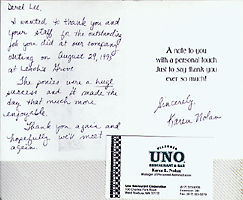 Derel Lee,
I wanted to thank you and
your staff for the outstanding
job you did at our company
outing on August 29, 1998
at Grove
The ponies were a huge
success and it made the
day that much more
enjoyable.
Thank you again and
hopefully we'll meet
again.
A note to you
with a personal touch
Just to say thank you
ever so much!
Sincerely,
Karen Nolan
PIZZERIA
UNO
RESTAURANT & BAR
Karen L. Nolan
Uno Restaurant Corporation
100 Charles Park Road
West Roxbury, MA 02132